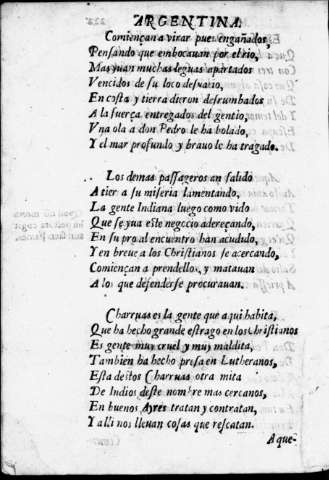 ARGENTINA.
Comiençan a virar pues engañados,
Pensando que embocauan por el rio,
Mas yuan muchas leguas apartados
Vencidos de su loco desuario,
En costa y tierra dieron desrumbados
A la fuerça entregados del gentio,
Vna ola a don Pedro le ha bolado,
Y el mar profundo y brauo le ha tragado.
Los demas passageros an salido
A tier a su miseria lamentando,
La gente Indiana luego como vido
Que se yua este negocio adereçando,
En su pro al encuentro han acudido,
Y en breue a los Christianos se acercando,
Comiençan a prendellos, y matauan
A los que defenderse procurauan.
Charruas es la gente que aqui habita,
Que ha hecho grande estrago en los Christianos
Es gente muy cruel y muy maldita,
Tambien ha hecho presa en Lutheranos,
Esta destos Charruas otra mita
De Indios deste nombre mas cercanos,
En buenos Ayres tratan y contratan,
Y alli nos lleuan cosas que rescatan.
A que-